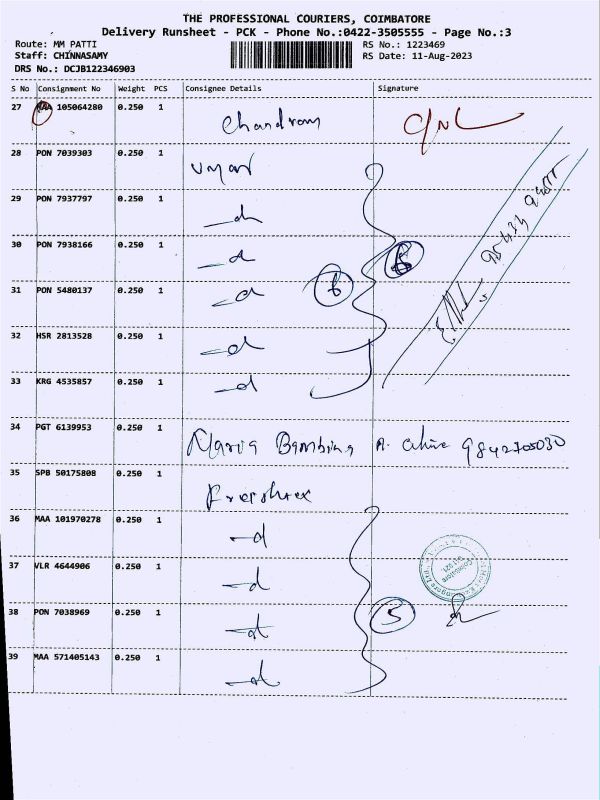 THE PROFESSIONAL COURIERS, COIMBATORE
Delivery Runsheet - PCK - Phone No.:0422-3505555 - Page No.:3
Route: MM PATTI RS No.: 1223469
Staff: CHINNASAMY RS Date: 11-Aug-2023
DRS No.: DCJB122346903
S No Consignment No Weight PCS Consignee Details Signature
27 MAA 105064280 0.250 1
28 PON 7039303 0.250 1
29 PON 7937797 0.250 1
30 PON 7938166 0.250 1
31 PON 5480137 0.250 1
32 HSR 2813528 0.250 1
33 KRG 4535857 0.250 1
34 PGT 6139953 0.250 1 Maria Bambina 9842705030
35 SPB 50175808 0.250 1
36 MAA 101970278 0.250 1
37 VLR 4644906 0.250 1
38 PON 7038969 0.250 1 5
39 MAA 571405143 0.250 1